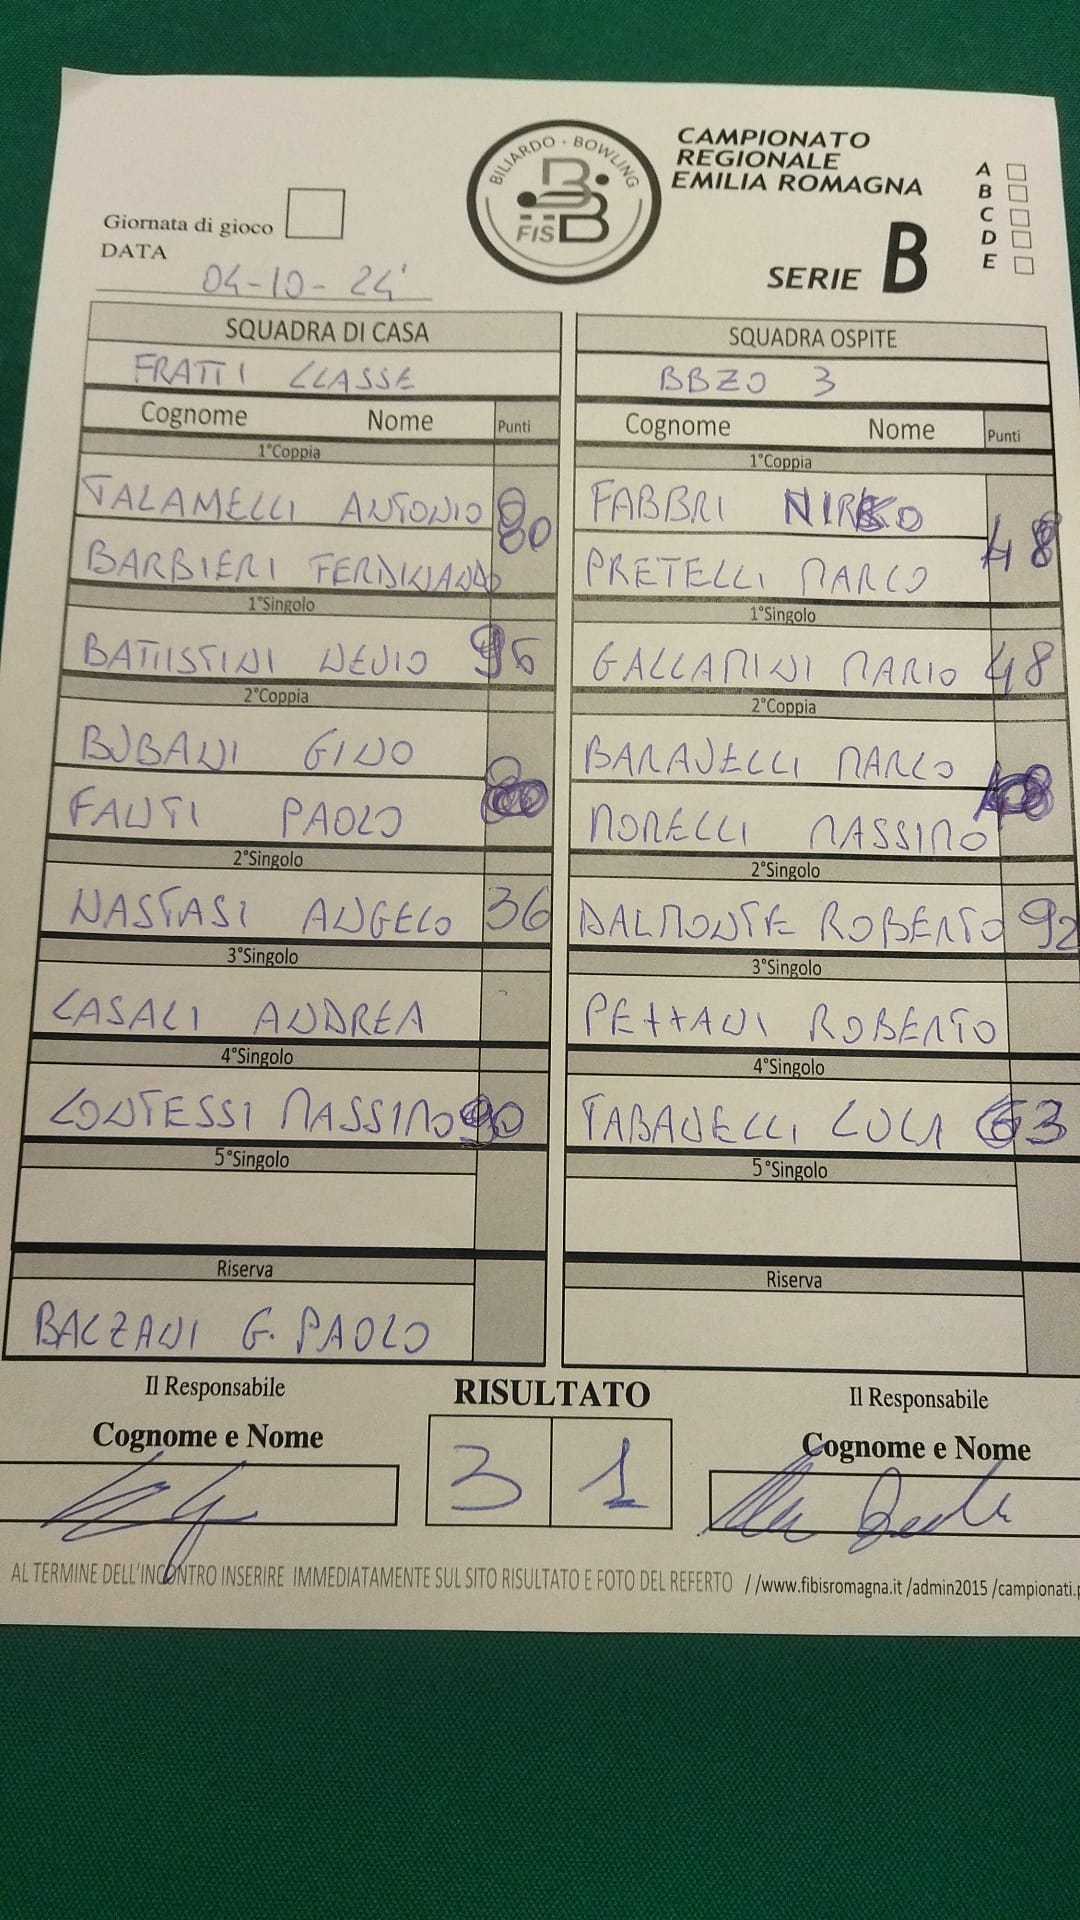 BILIARDO · BOWLING
FISB
CAMPIONATO
REGIONALE
EMILIA ROMAGNA
SERIE B
A
B
C
D
E
Giornata di gioco
DATA
04-10-24
SQUADRA DI CASA
SQUADRA OSPITE
FRATTI CLASSE
BBZO 3
Cognome Nome Punti
Cognome Nome Punti
1°Coppia
1°Coppia
TALAMELLI ANTONIO
FABBRI
80
48
BARBIERI FERDINANDO
PRETELLI MARCO
1°Singolo
1°Singolo
BATTISTINI NEVIO
GALLAMINI MARIO 48
2°Coppia
2°Coppia
BUBANI GINO
BARAVELLI MARCO
FANTI PAOLO
MORELLI MASSIMO
2°Singolo
2°Singolo
NASTASI ANGELO 36
DALMONTE ROBERTO 92
3°Singolo
3°Singolo
CASALI ANDREA
PEZZANI ROBERTO
4°Singolo
4°Singolo
CONTESSI MASSIMO 90
TABANELLI LUCA 63
5°Singolo
5°Singolo
Riserva
Riserva
BALZANI G. PAOLO
Il Responsabile
RISULTATO
Il Responsabile
Cognome e Nome
Cognome e Nome
3 1
AL TERMINE DELL'INCONTRO INSERIRE IMMEDIATAMENTE SUL SITO RISULTATO E FOTO DEL REFERTO //www.fibisromagna.it /admin2015 /campionati.p